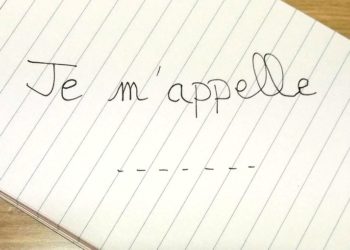 Je m'appelle
- - - - - - -